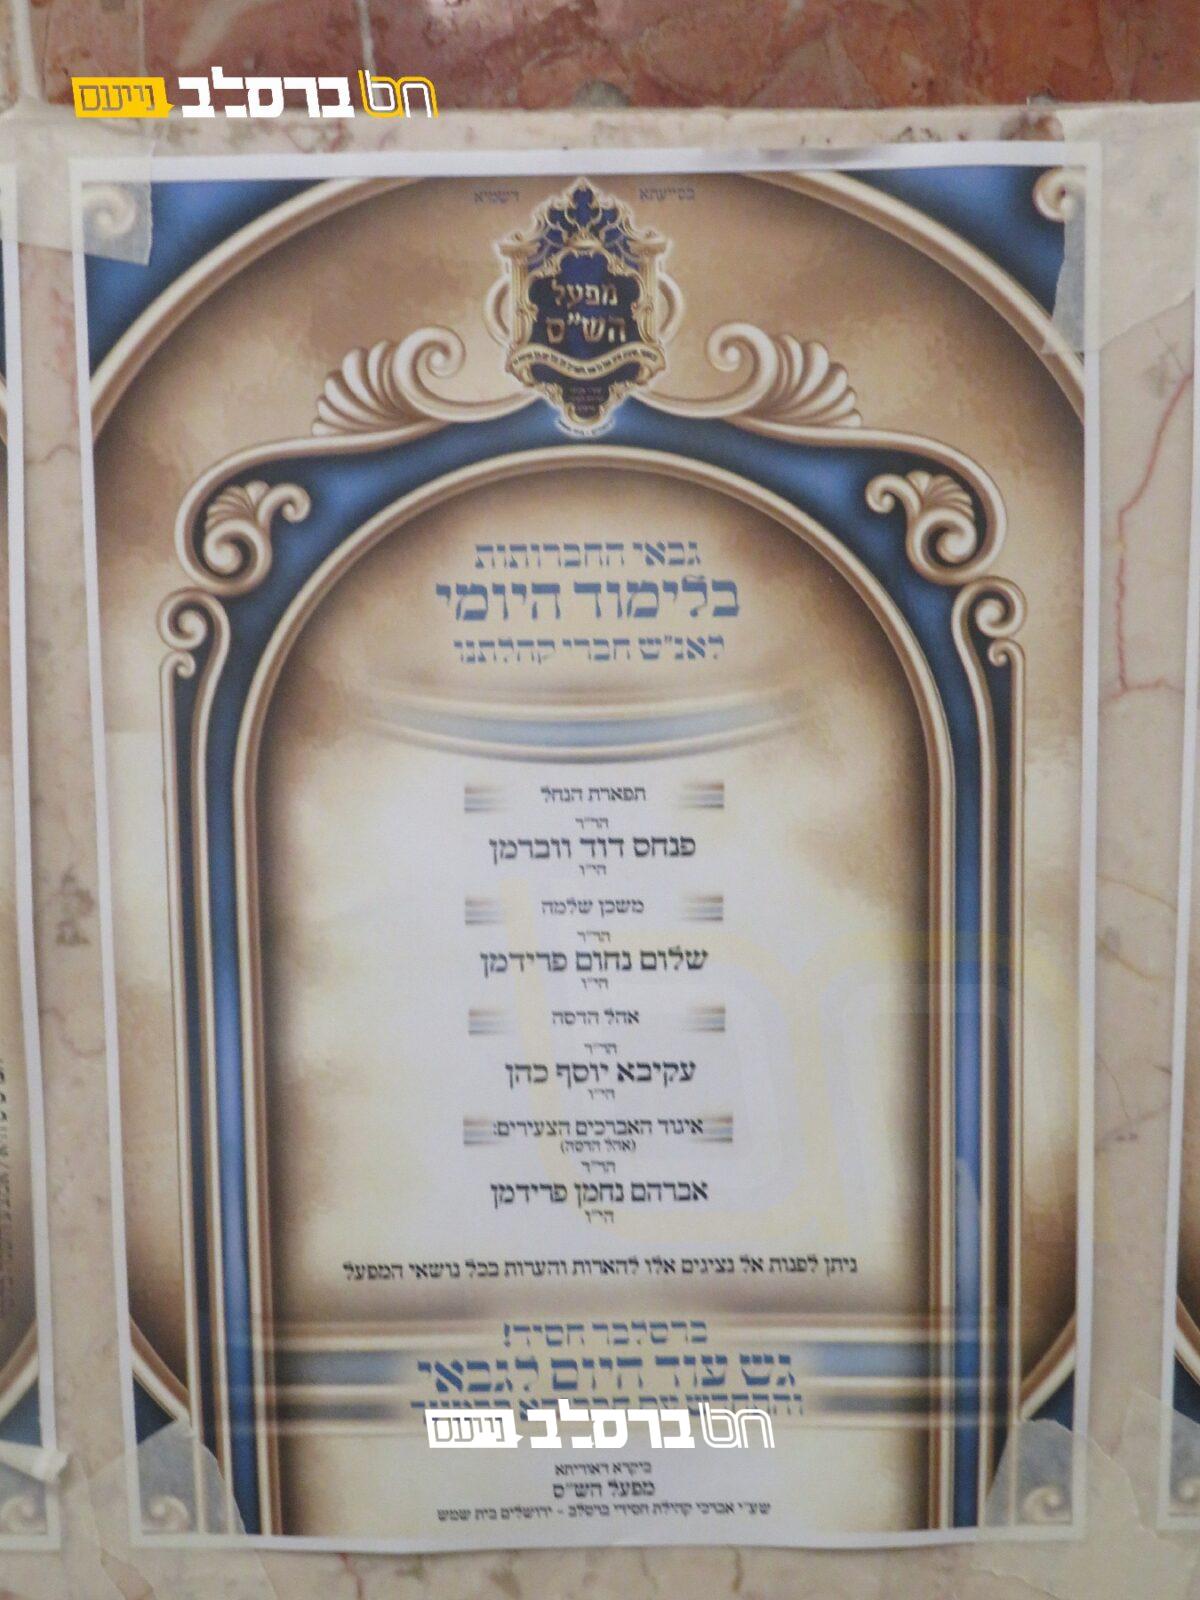 חסד ברסלב נייעס
בסייעתא דשמיא
מפעל
הש"ס
גבאי החברותות
בלימוד היומי
לאנ"ש חברי קהלתנו
תפארת הנחל
הר"ר
פנחס דוד ווברמן
הי"ו
משכן שלמה
הר"ר
שלום נחום פרידמן
הי"ו
אהל הדסה
הר"ר
עקיבא יוסף כהן
הי"ו
איגוד האברכים הצעירים:
(אהל הדסה)
הר"ר
אברהם נחמן פרידמן
הי"ו
ניתן לפנות אל נציגים אלו להארות והערות בכל נושאי המפעל
ברסלבר חסיד!
גש עוד היום לגבאי
ברסלב נייעס
ביקרא דאורייתא
מפעל הש"ס
שע"י אברכי קהילת חסידי ברסלב - ירושלים בית שמש